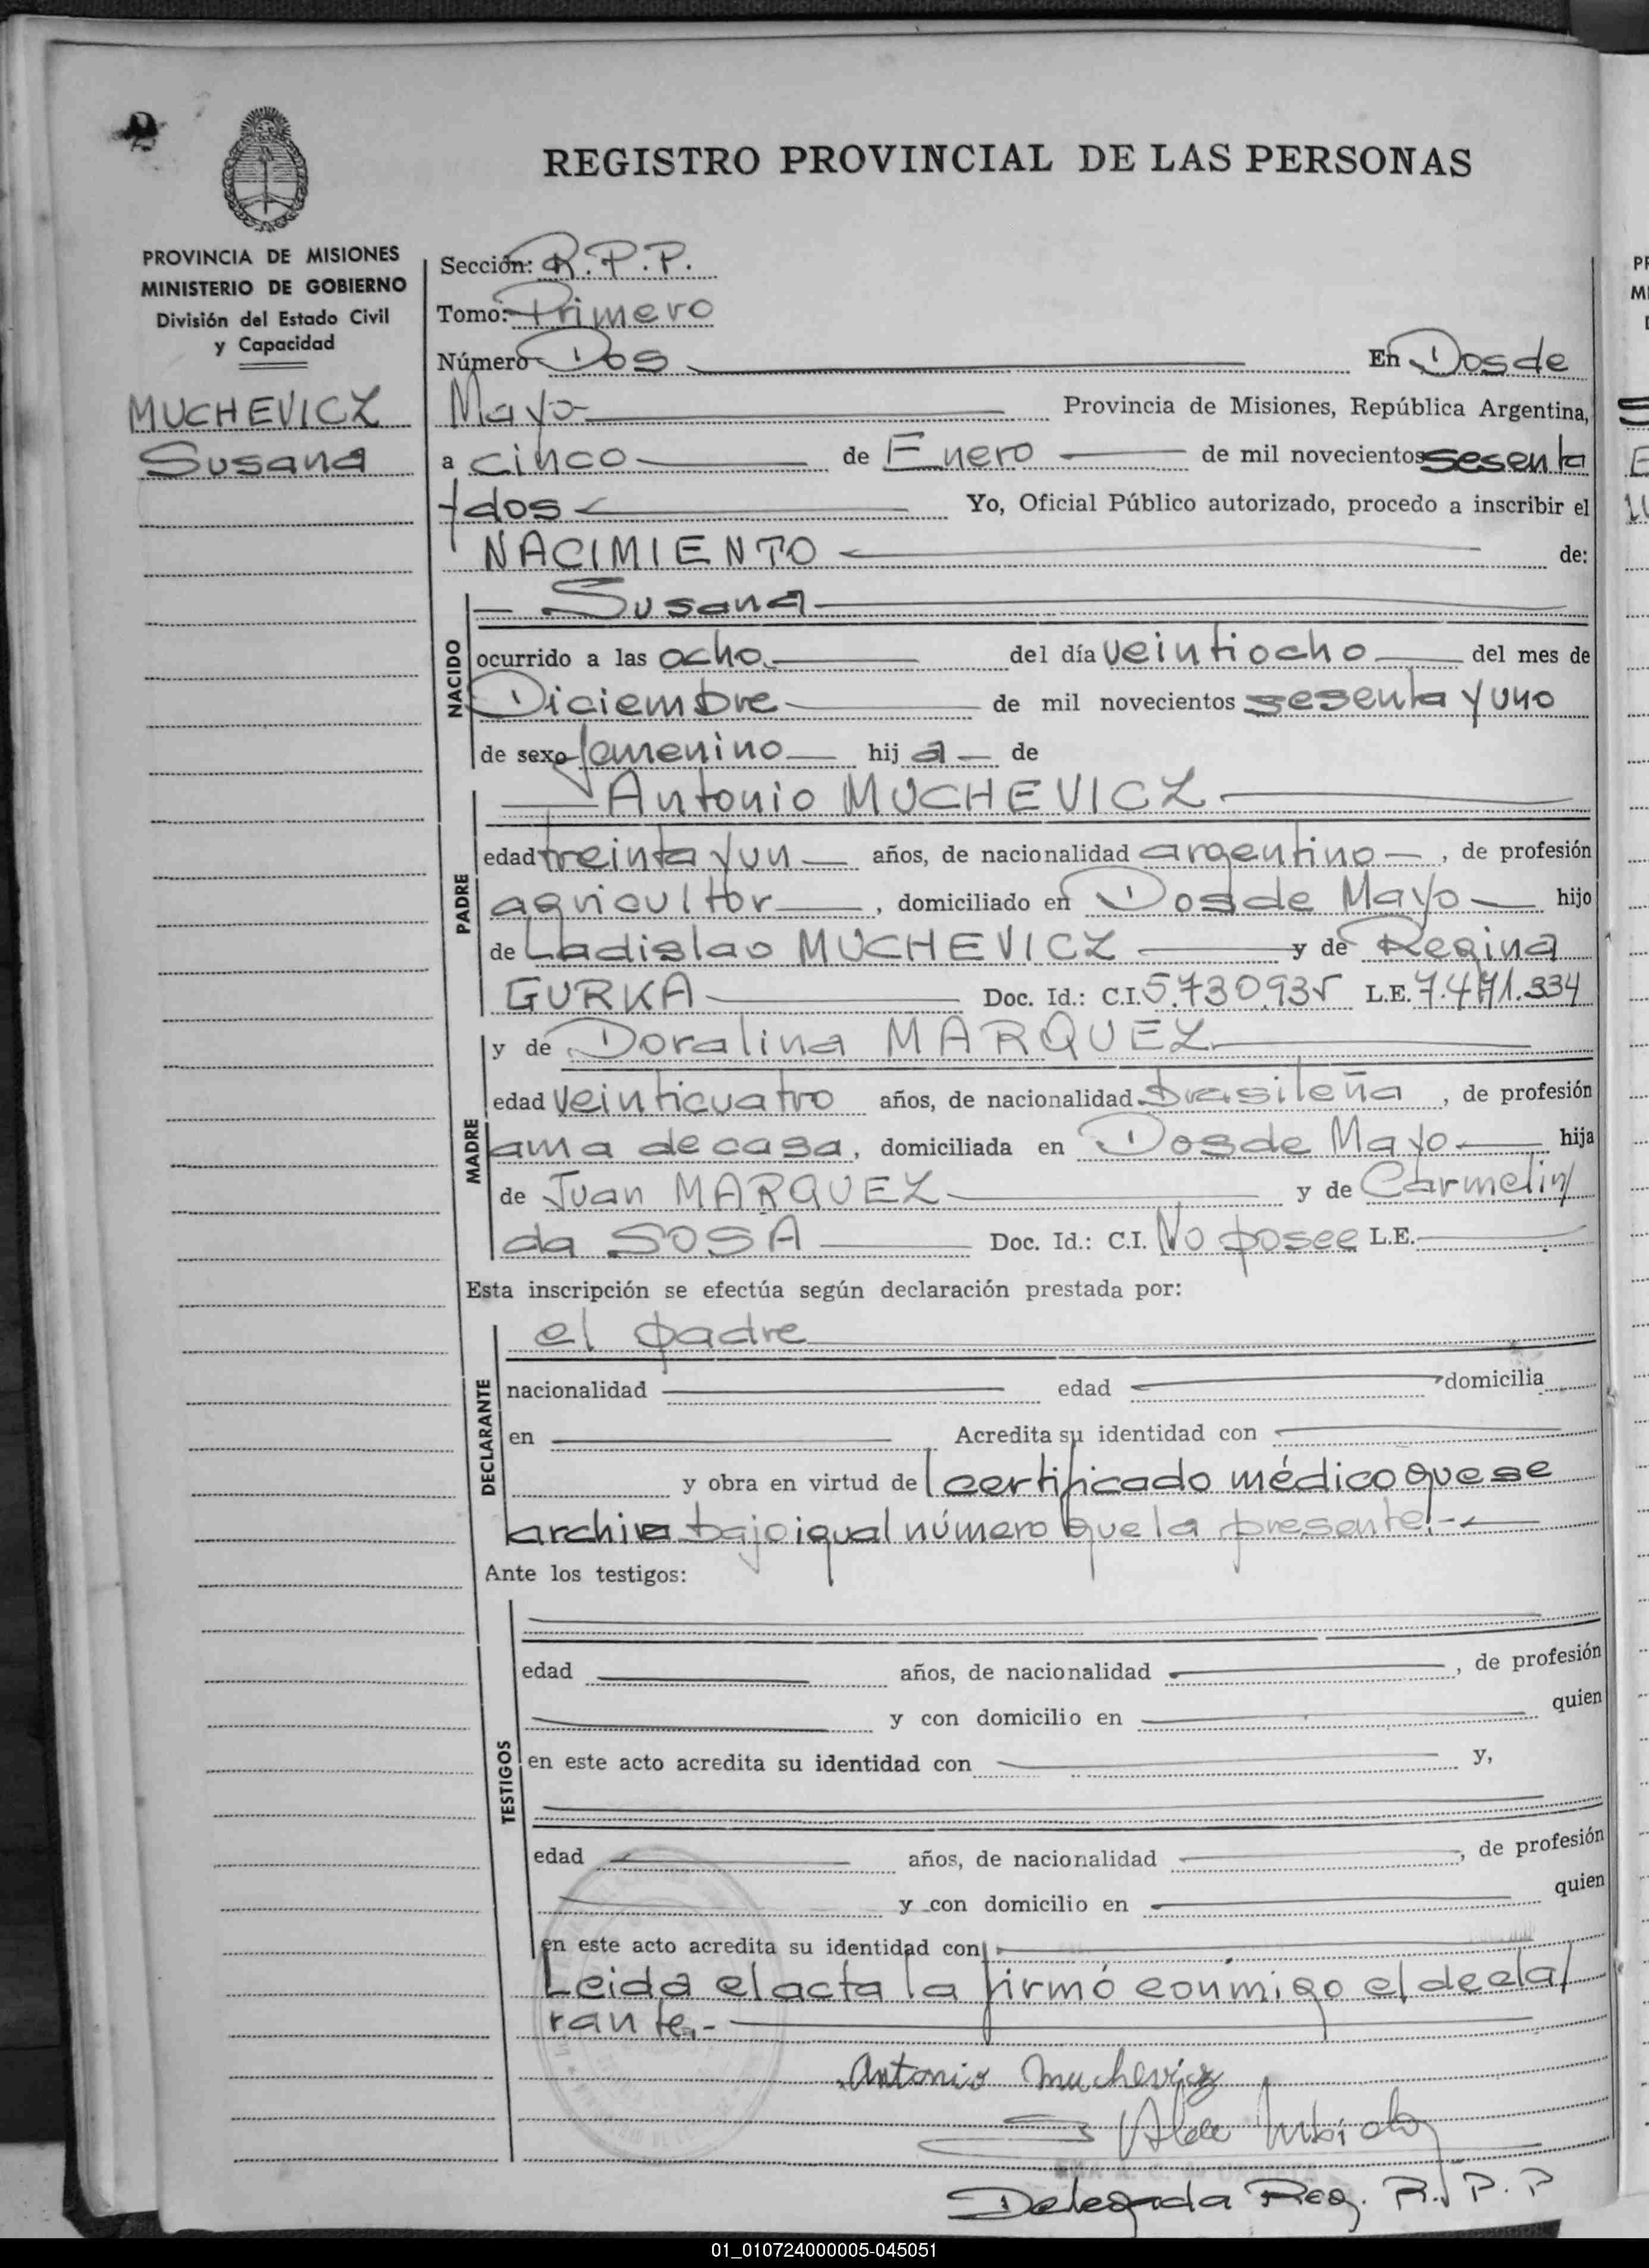 2
REGISTRO PROVINCIAL DE LAS PERSONAS
PROVINCIA DE MISIONES
MINISTERIO DE GOBIERNO
División del Estado Civil
y Capacidad
MUCHEVICZ
Susana
Sección: R.P.P.
Tomo: Primero
Número Dos En Dos de
Mayo Provincia de Misiones, República Argentina,
a cinco de Enero de mil novecientos sesenta
y dos Yo, Oficial Público autorizado, procedo a inscribir el
NACIMIENTO de:
NACIDO
Susana
ocurrido a las ocho del día veintiocho del mes de
Diciembre de mil novecientos sesenta y uno
de sexo femenino hij a de
PADRE
Antonio MUCHEVICZ
edad treinta y un años, de nacionalidad argentino, de profesión
agricultor, domiciliado en Dos de Mayo hijo
de Ladislao MUCHEVICZ y de Regina
GURKA Doc. Id.: C.I. 5.730.935 L.E. 7.471.334
MADRE
y de Doralina MARQUEZ
edad veinticuatro años, de nacionalidad brasileña, de profesión
ama de casa, domiciliada en Dos de Mayo hija
de Juan MARQUEZ y de Carmelin/
da SOSA Doc. Id.: C.I. No posee L.E.
Esta inscripción se efectúa según declaración prestada por:
DECLARANTE
el padre
nacionalidad edad domicilia
en Acredita su identidad con
y obra en virtud de l certificado médico que se
archiva bajo igual número que la presente.-
Ante los testigos:
TESTIGOS
edad años, de nacionalidad , de profesión
y con domicilio en quien
en este acto acredita su identidad con y,
edad años, de nacionalidad , de profesión
y con domicilio en quien
en este acto acredita su identidad con
Leida el acta la firmó conmigo el decla/
rante.-
Antonio Muchevicz
Delegada Reg. R.P.P
01_010724000005-045051